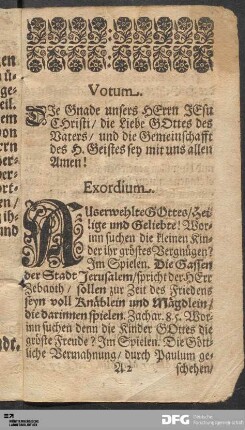 Votum.
DIe Gnade unsers HErrn JEsu
CHristi/ die Liebe GOttes des
Vaters/ und die Gemeinschafft
des H. Geistes sey mit uns allen
Amen!
Exordium.
AUserwehlte GOttes/ Hei-
lige und Geliebte! Wor-
inn suchen die kleinen Kin-
der ihr gröstes Vergnügen?
Im Spielen. Die Gassen
der Stadt Jerusalem/ spricht der HErr
Zebaoth/ sollen zur Zeit des Friedens
seyn voll Knäblein und Mägdlein/
die darinnen spielen. Zachar. 8. 5. Wor-
inn suchen denn die Kinder GOttes die
gröste Freude? Im Spielen. Die Gött-
liche Vermahnung/ durch Paulum ge-
A 2 schehen/
DFG